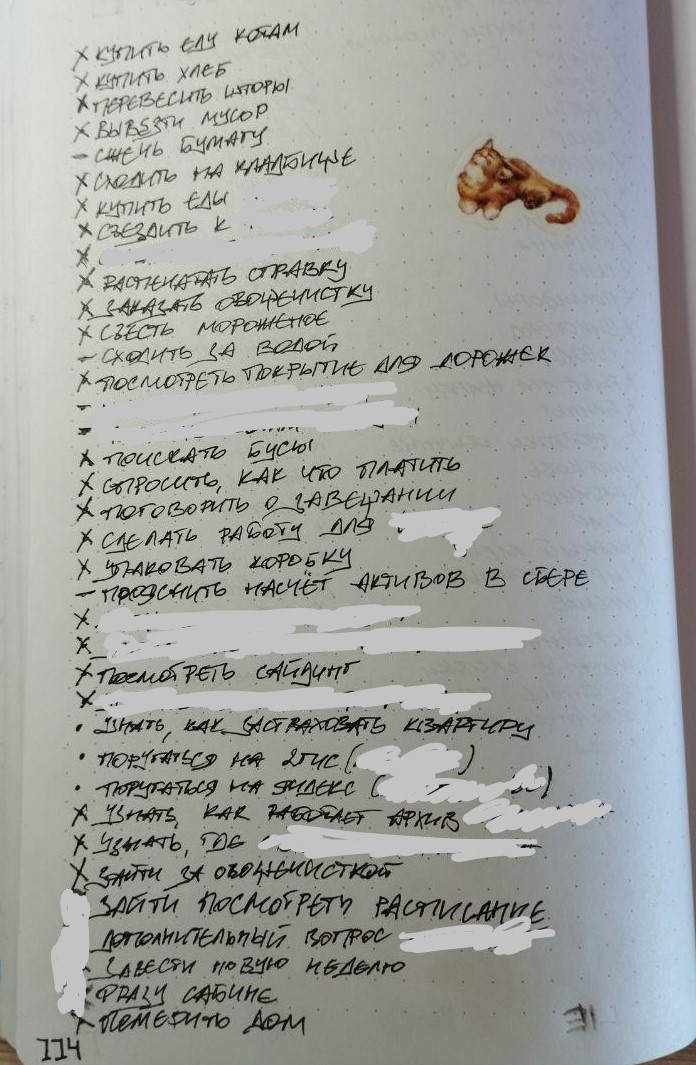 × КУПИТЬ ЕДУ КОТАМ
× КУПИТЬ ХЛЕБ
× ПЕРЕВЕСИТЬ ШТОРЫ
× ВЫВЕЗТИ МУСОР
– СЖЕЧЬ БУМАГУ
× СХОДИТЬ НА КЛАДБИЩЕ
× КУПИТЬ ЕДЫ
× СЪЕЗДИТЬ К
×
× РАСПЕЧАТАТЬ СПРАВКУ
× ЗАКАЗАТЬ ОВОЩЕЧИСТКУ
× СЪЕСТЬ МОРОЖЕНОЕ
– СХОДИТЬ ЗА ВОДОЙ
× ПОСМОТРЕТЬ ПОКРЫТИЕ ДЛЯ ДОРОЖЕК
–
–
× ПОИСКАТЬ БУСЫ
× СПРОСИТЬ, КАК ЧТО ПЛАТИТЬ
× ПОГОВОРИТЬ О ЗАВЕЩАНИИ
× СДЕЛАТЬ РАБОТУ ДЛЯ
× УПАКОВАТЬ КОРОБКУ
– ПРОЯСНИТЬ НАСЧЁТ АКТИВОВ В СБЕРЕ
×
×
× ПОСМОТРЕТЬ САЙДИНГ
×
• УЗНАТЬ, КАК ЗАСТРАХОВАТЬ КВАРТИРУ
• ПОРУГАТЬСЯ НА 2ГИС ( )
• ПОРУГАТЬСЯ НА ЯНДЕКС ( )
× УЗНАТЬ, КАК РАБОТАЕТ АРХИВ
× УЗНАТЬ, ГДЕ
× ЗАЙТИ ЗА ОВОЩЕЧИСТКОЙ
ЗАЙТИ ПОСМОТРЕТЬ РАСПИСАНИЕ
ДОПОЛНИТЕЛЬНЫЙ ВОПРОС
ЗАВЕСТИ НОВУЮ НЕДЕЛЮ
ФРАЗУ САБИНЕ
× ПОМЕРИТЬ ДОМ
114